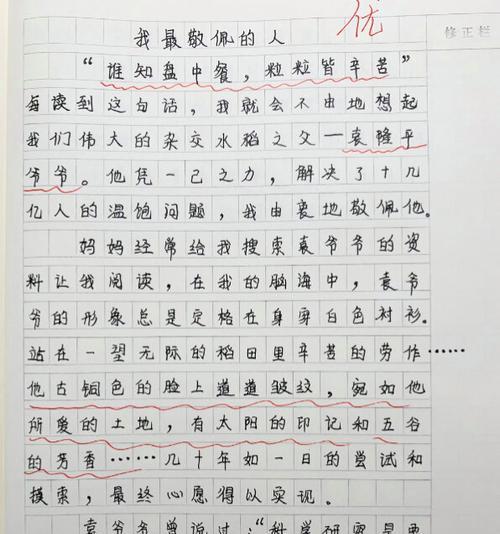 优
修正栏
我最敬佩的人
“谁知盘中餐，粒粒皆辛苦”
每读到这句话，我就会不由地想起
我们伟大的杂交水稻之父一袁隆平
爷爷。他凭一己之力，解决了十几
亿人的温饱问题，我由衷地敬佩他。
妈妈经常给我搜索袁爷爷的资
料让我阅读，在我的脑海中，袁爷
爷的形象总是定格在身穿白色衬衫。
站在一望无际的稻田里辛苦的劳作……
他古铜色的脸上道道皱纹，宛如他
所爱的土地，有太阳的印记和五谷
的芳香……几十年如一日的尝试和
摸索，最终心愿得以实现。
袁爷爷曾说过：“科学研究是要